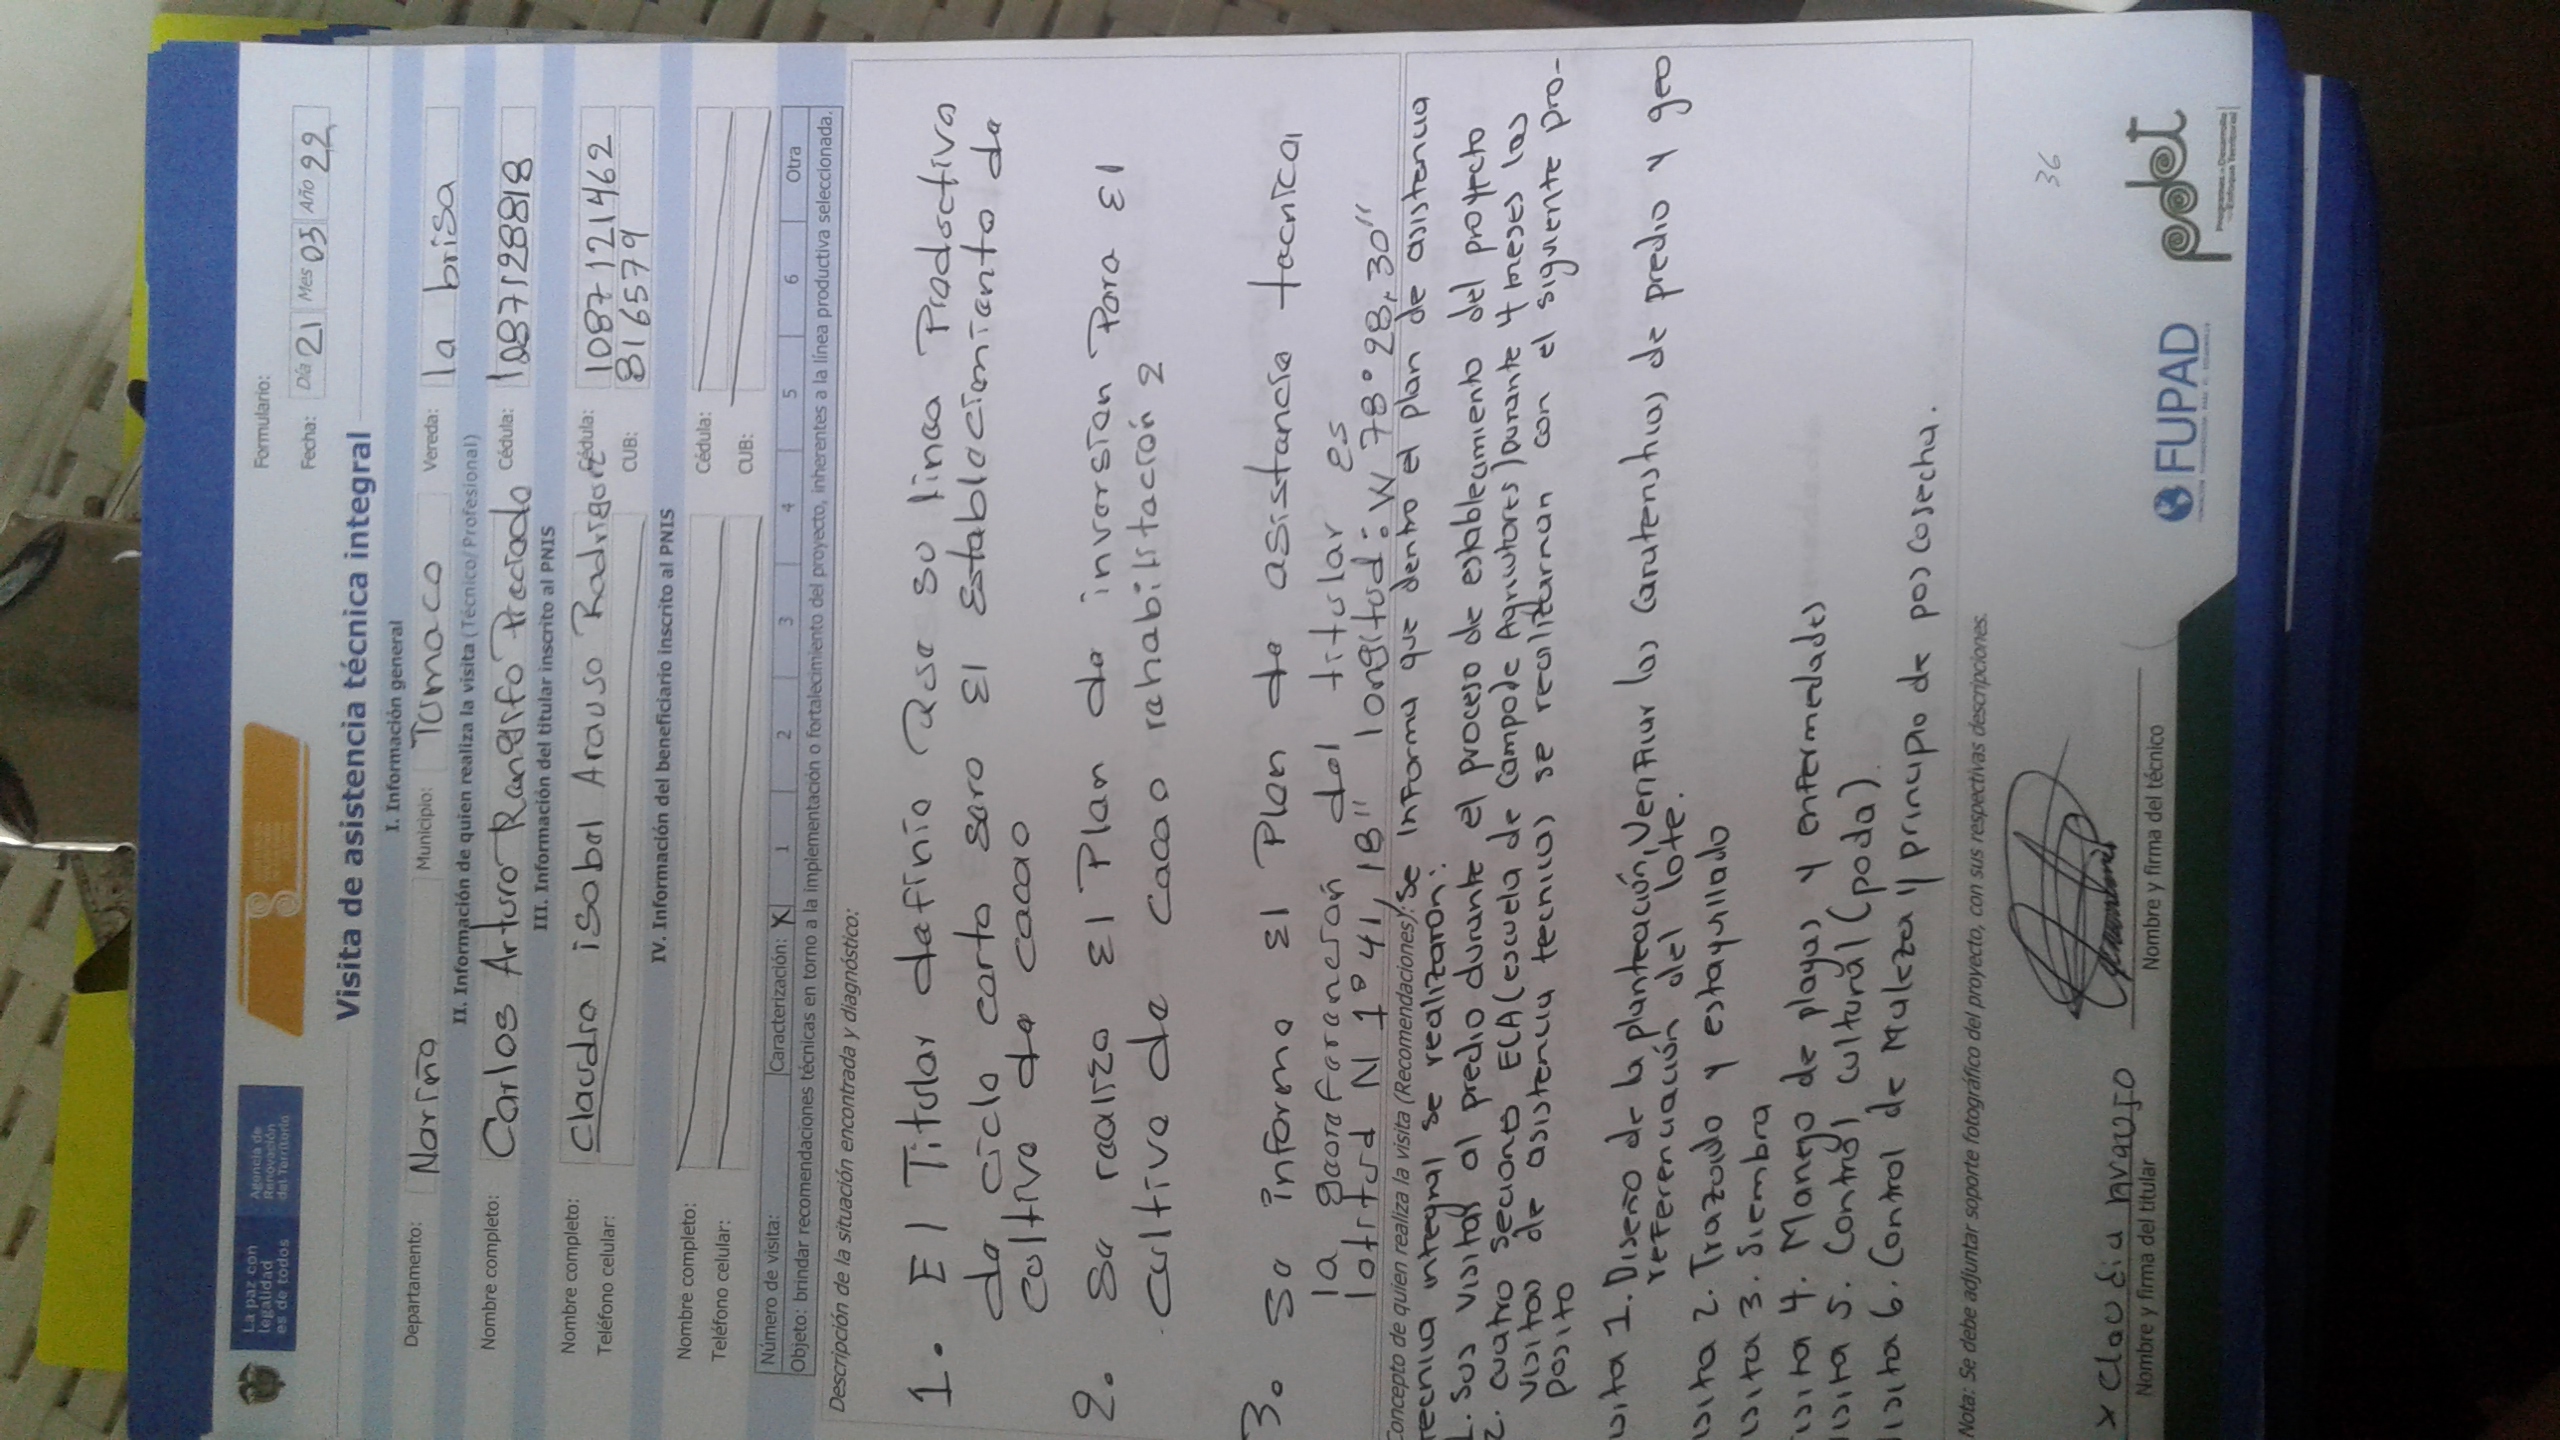 La paz con
legalidad
es de todos
Agencia de
Renovación
del Territorio
Formulario:
Fecha: Día 21 Mes 03 Año 22
Visita de asistencia técnica integral
I. Información general
Departamento: Nariño Municipio: Tumaco Vereda: la brisa
II. Información de quien realiza la visita (Técnico/ Profesional)
Nombre completo: Carlos Arturo Rangifo Preciado Cédula: 1087128818
III. Información del titular inscrito al PNIS
Nombre completo: Claudia isabel Arauso Rodriguez Cédula: 1087121462
Teléfono celular: CUB: 816579
IV. Información del beneficiario inscrito al PNIS
Nombre completo: Cédula:
Teléfono celular: CUB:
Número de visita: Caracterización: X 1 2 3 4 5 6 Otra
Objeto: brindar recomendaciones técnicas en torno a la implementación o fortalecimiento del proyecto, inherentes a la línea productiva seleccionada.
Descripción de la situación encontrada y diagnóstico:
1. El Titular definio que su linea Productiva
de ciclo corto sera El Establecimiento de
cultivo de cacao
2. Se realizo El Plan de inversion Para El
cultivo de cacao rehabilitación 2
3. Se informo El Plan de asistencia tecnica,
la georeferencion del titular es
latitud N 1° 41, 18" longitud: W 78° 28, 30"
Concepto de quien realiza la visita (Recomendaciones): Se informa que dentro el plan de asistencia
tecnica integral se realizaron:
1. Sus visitas al predio durante el proceso de establecimiento del proyecto
2. cuatro seciones ECA (escuela de Campo de Agricutores) Durante 4 meses las
visitas de asistencia tecnicas se realizarnan con el siguiente pro-
posito
isita 1. Diseño de la planteación, Verificar las Caratensticas de predio y geo
referenciación del lote.
isita 2. Trazado y estaquillado
isita 3. Siembra
isita 4. Manejo de plagas y enfermedades
isita 5. Control cultural (poda).
isita 6. Control de Maleza y principio de pos cosecha.
Nota: Se debe adjuntar soporte fotográfico del proyecto, con sus respectivas descripciones.
36
x Claudia Araujo
Nombre y firma del titular
Nombre y firma del técnico
FUPAD
pdet
Programas de Desarrollo
con Enfoque Territorial